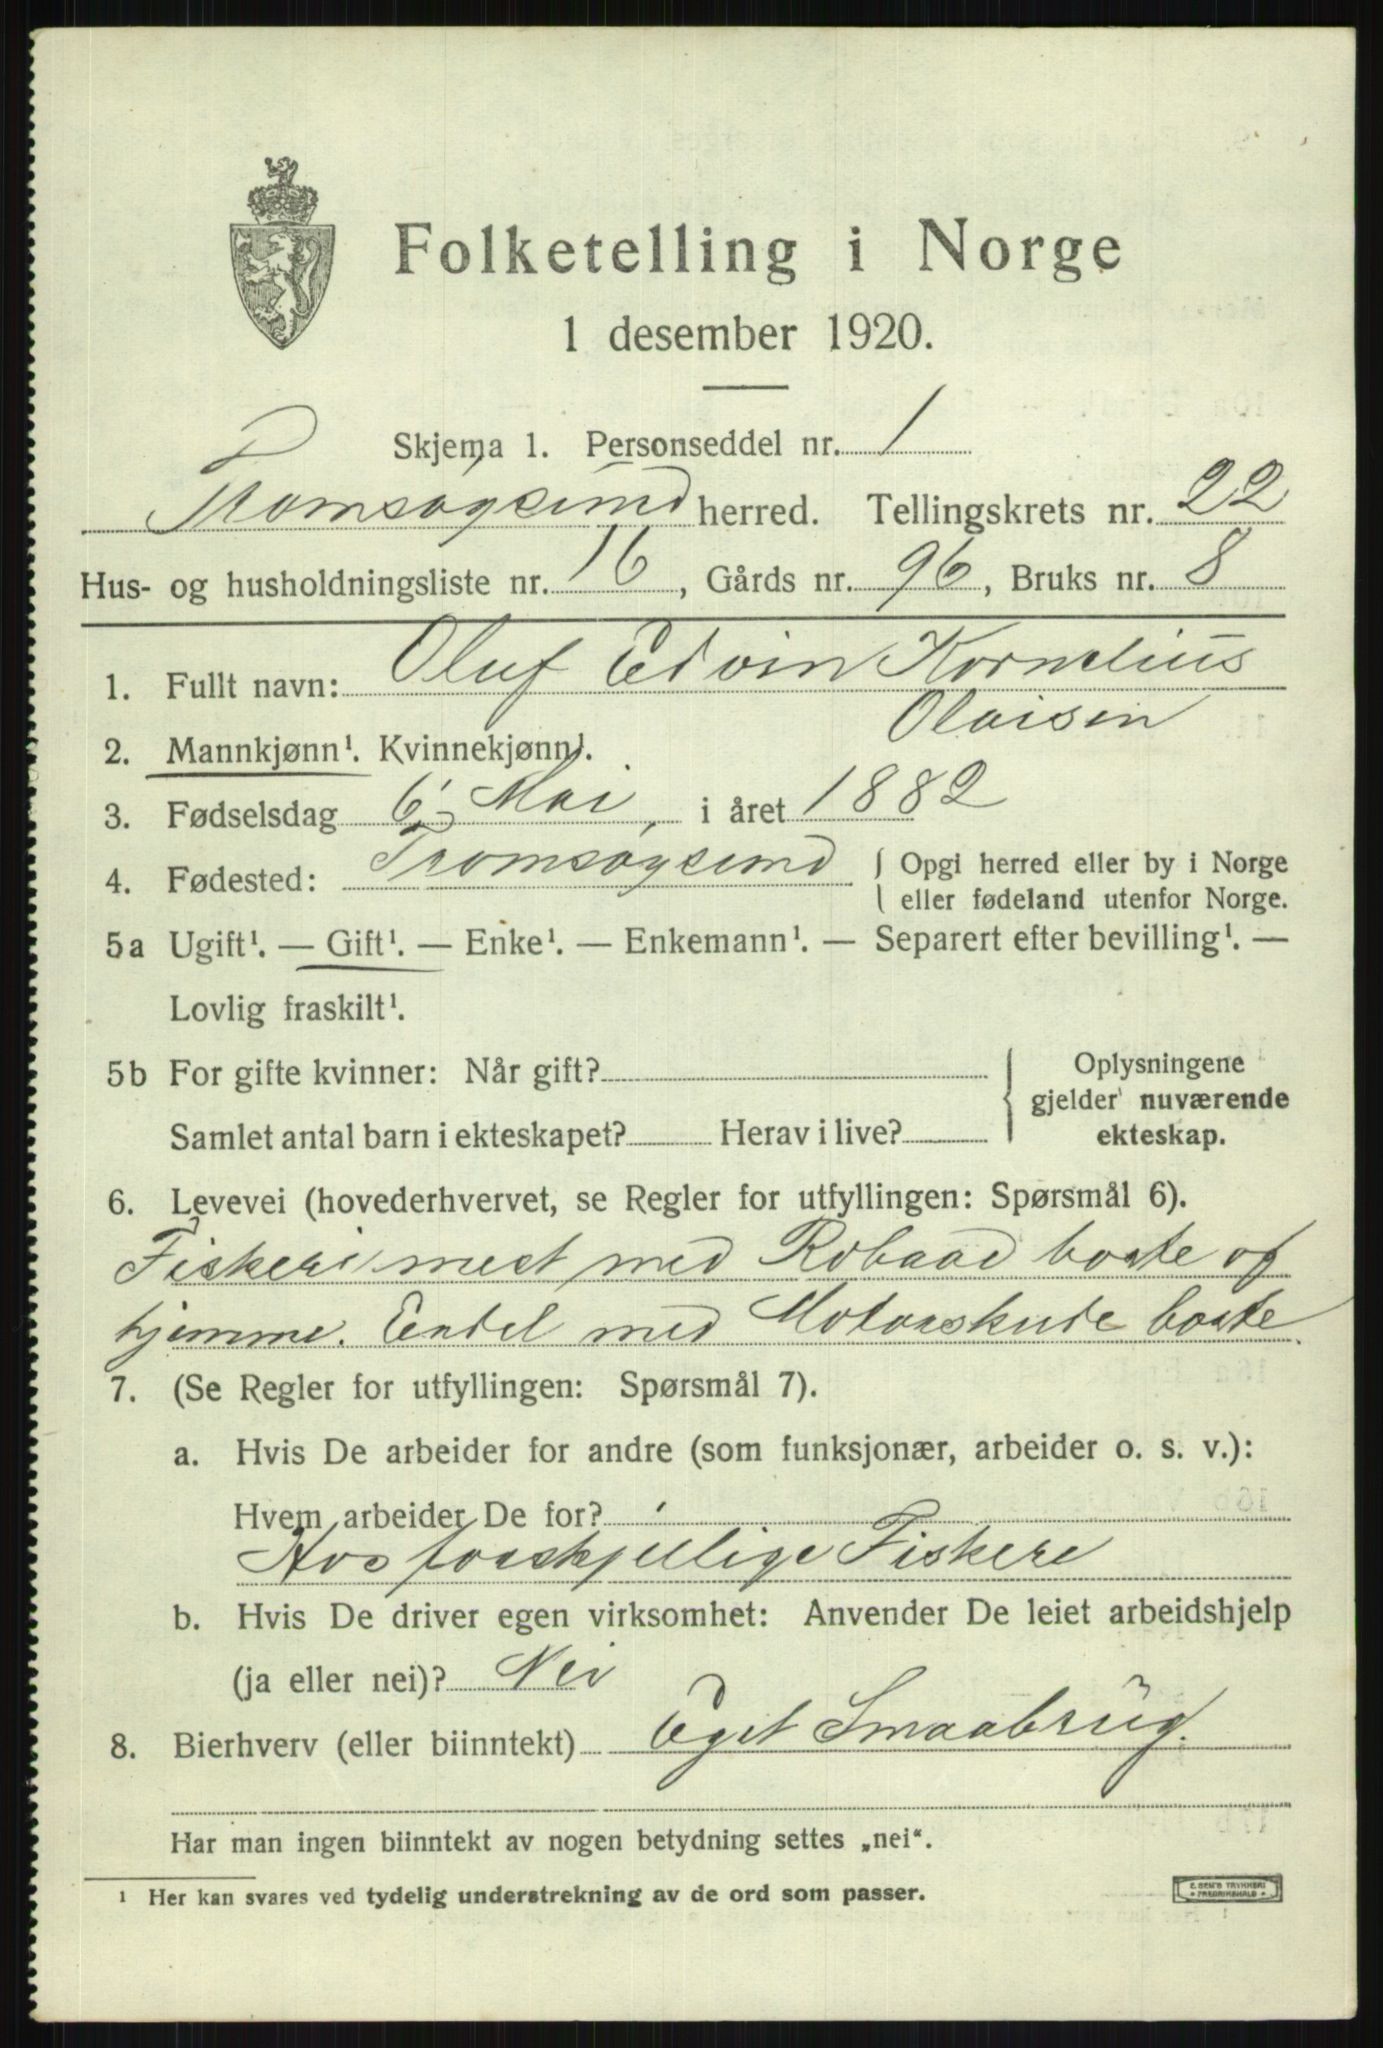 Folketelling i Norge
1 desember 1920.
Skjema 1. Personseddel nr. 1
Tromsøysund herred. Tellingskrets nr. 22
Hus- og husholdningsliste nr. 16, Gårds nr. 96, Bruks nr. 8
1. Fullt navn: Oluf Edvin Kornelius
Olaisen
2. Mannkjønn¹. Kvinnekjønn¹.
3. Fødselsdag 6. Mai, i året 1882
4. Fødested: Tromsøysund { Opgi herred eller by i Norge
eller fødeland utenfor Norge.
5a Ugift¹. — Gift¹. — Enke¹. — Enkemann¹. — Separert efter bevilling¹. —
Lovlig fraskilt¹.
5b For gifte kvinner: Når gift? { Oplysningene
gjelder nuværende
Samlet antal barn i ekteskapet? Herav i live? ekteskap.
6. Levevei (hovederhvervet, se Regler for utfyllingen: Spørsmål 6).
Fiskeri mest med Robaad borte og
hjemme. Endel med Motorskude borte.
7. (Se Regler for utfyllingen: Spørsmål 7).
a. Hvis De arbeider for andre (som funksjonær, arbeider o. s. v.):
Hvem arbeider De for?
Hos forskjellige Fiskere
b. Hvis De driver egen virksomhet: Anvender De leiet arbeidshjelp
(ja eller nei)? Nei
8. Bierhverv (eller biinntekt) Eget Smaabrug.
Har man ingen biinntekt av nogen betydning settes „nei“.
¹ Her kan svares ved tydelig understrekning av de ord som passer.
E. SEM'S TRYKKERI
FREDRIKSHALD